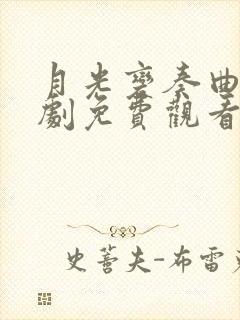 月光變奏曲
劇免費觀看
史蒂夫-布雷克